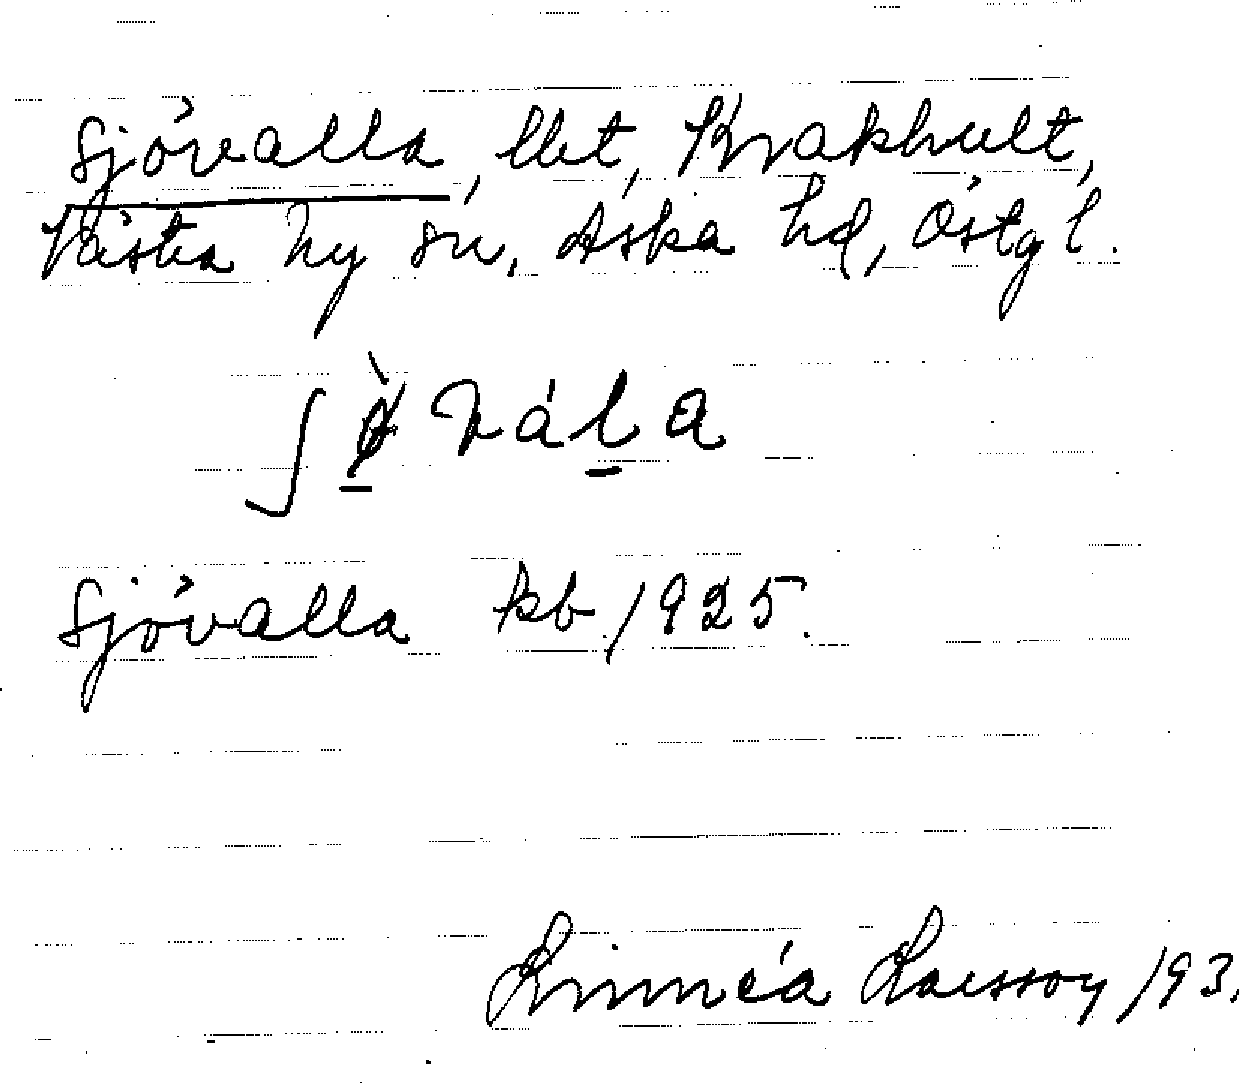 Sjövalla, lht, Krakhult,
Västra Ny sn, Aska hd, Östg l.
Sjövalla kb 1925.
Linnéa Larsson 193